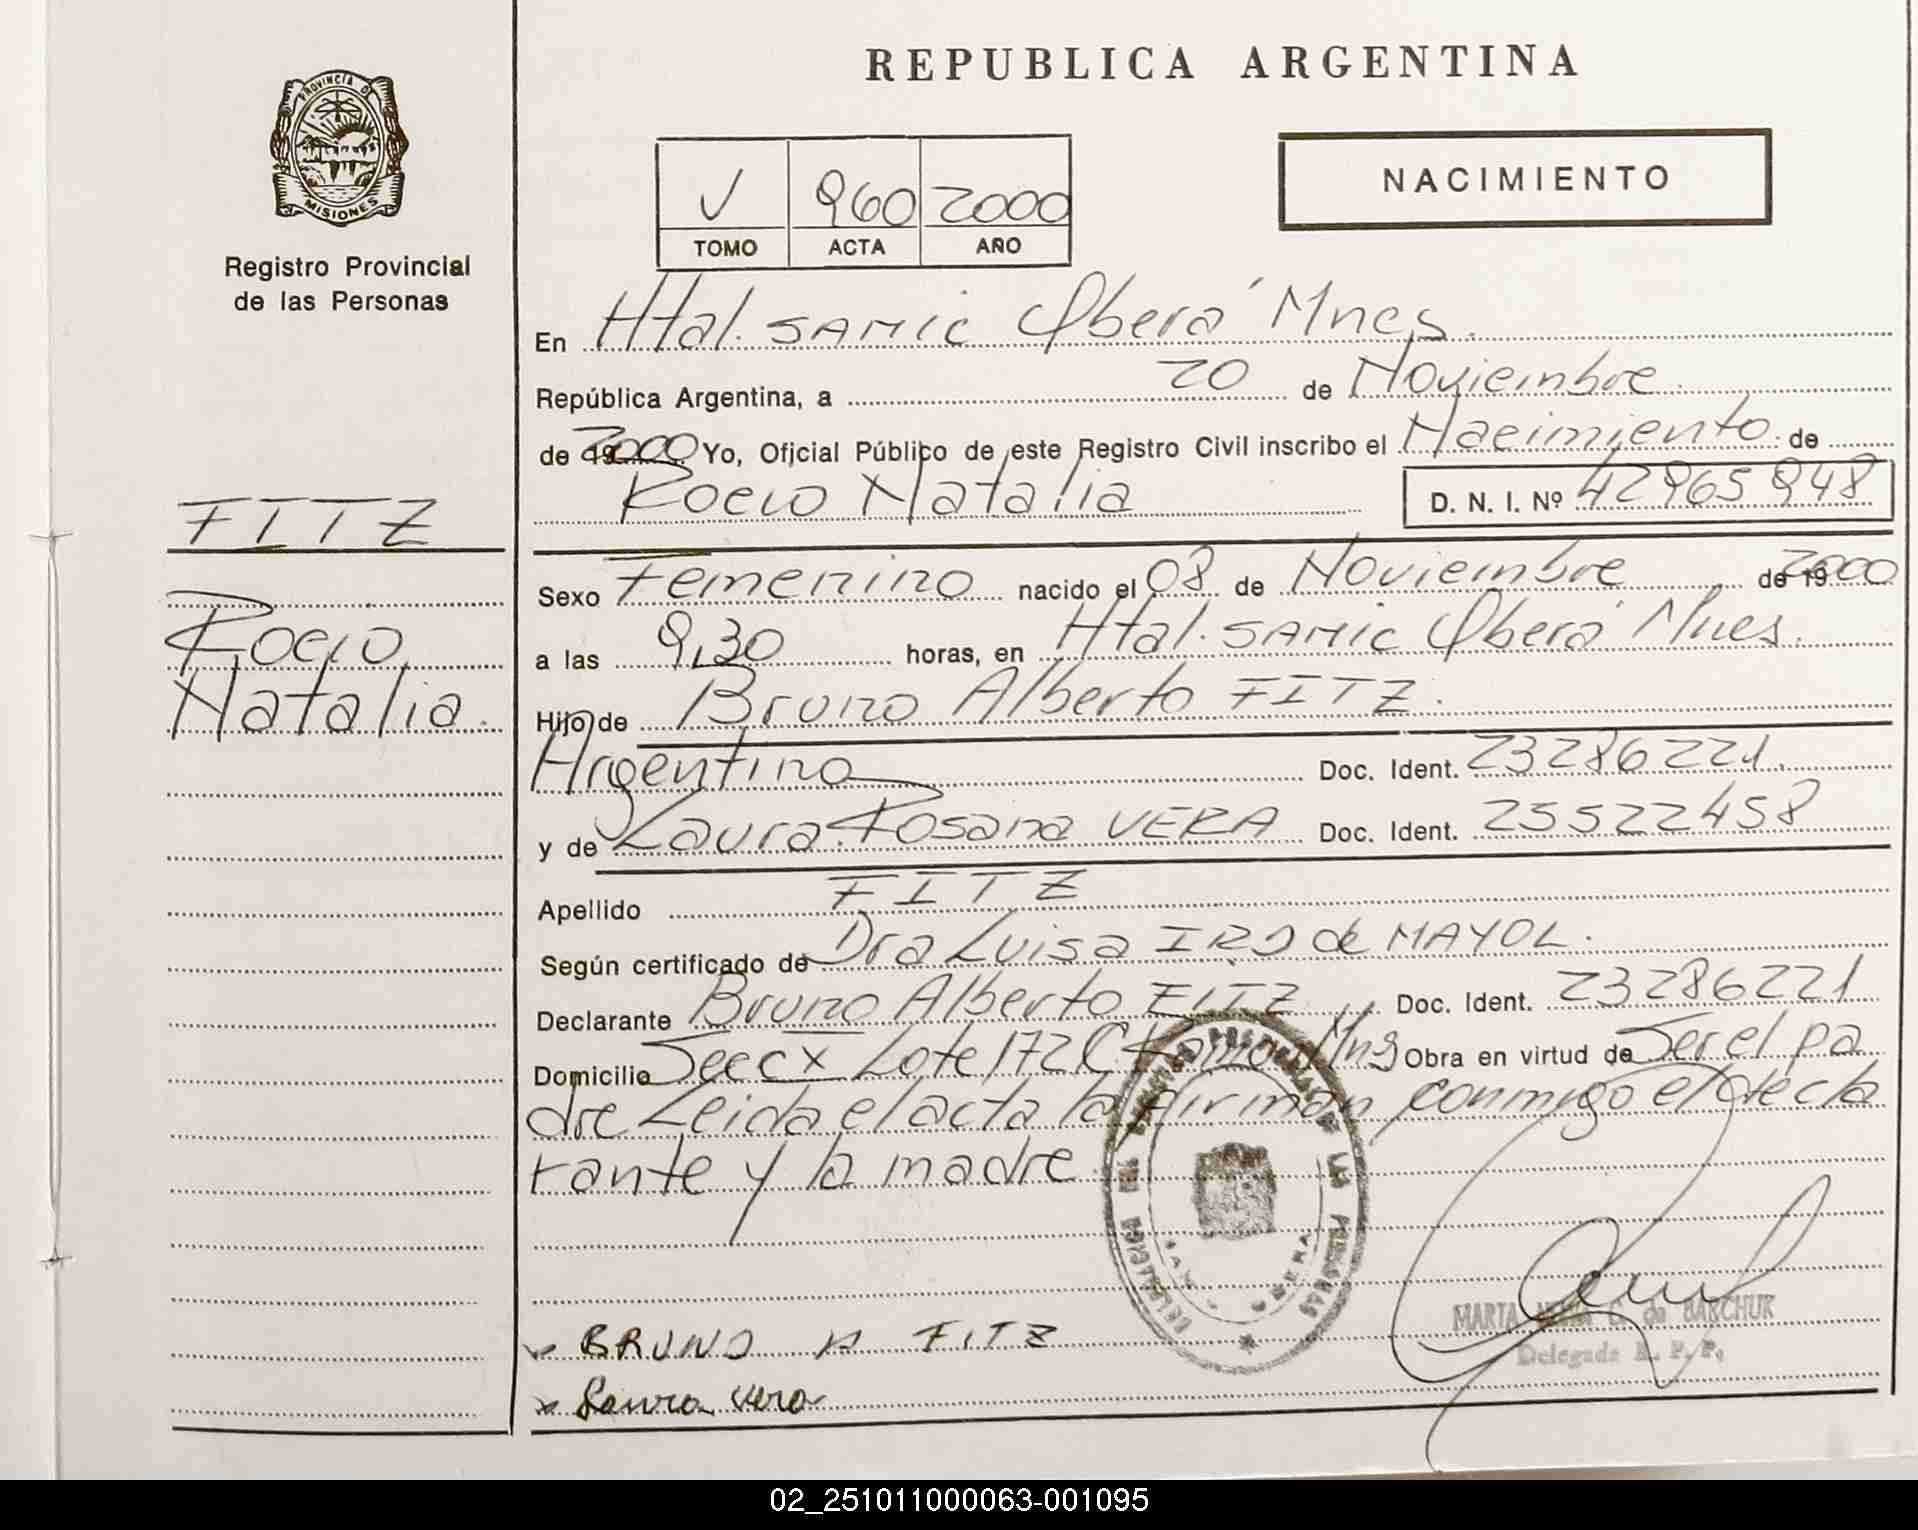 REPUBLICA ARGENTINA
PROVINCIA D
MISIONES
Registro Provincial
de las Personas
V 960 2000
TOMO ACTA AÑO
NACIMIENTO
En Htal. SAMIC Oberá Mnes.
República Argentina, a 20 de Noviembre
de 2000 Yo, Oficial Público de este Registro Civil inscribo el Nacimiento de
Rocio Natalia D. N. I. Nº 42965948
FITZ
Rocio
Natalia.
Sexo Femenino nacido el 08 de Noviembre de 2000
a las 9,30 horas, en Htal. SAMIC Oberá Mnes.
Hijo de Bruno Alberto FITZ.
Argentino Doc. Ident. 23286221.
y de Laura Rosana VERA Doc. Ident. 25522458
Apellido FITZ
Según certificado de Dra Luisa de MAYOL.
Declarante Bruno Alberto FITZ Doc. Ident. 23286221
Domicilio Secc X Lote 172 Obra en virtud de Ser el pa
dre Leida el acta la firman conmigo el decla
rante y la madre
BRUNO A FITZ
Laura Vera
MARTA C. de BARCHUK
Delegada R. P. P.
02_251011000063-001095